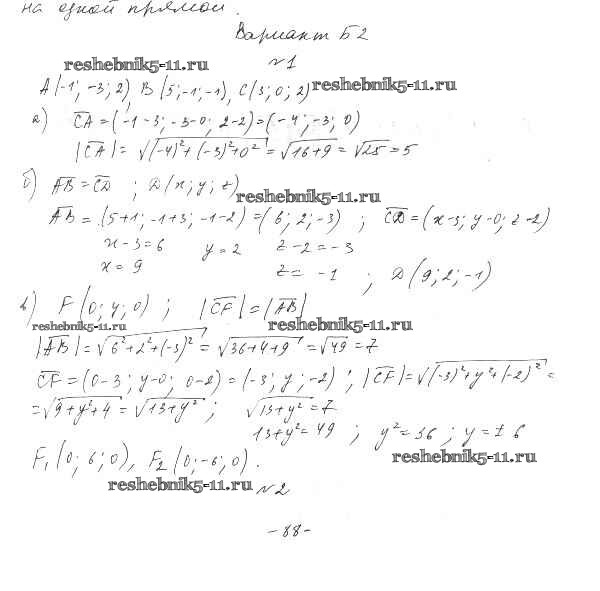 на одной прямой.
Вариант Б2
№1
reshebnik5-11.ru
A(-1; -3; 2), B(5; -1; -1), C(3; 0; 2) reshebnik5-11.ru
а) CA = (-1-3; -3-0; 2-2) = (-4; -3; 0)
|CA| = √((-4)²+(-3)²+0²) = √(16+9) = √25 = 5
б) AB = CD ; D(x; y; z)
reshebnik5-11.ru
AB = (5+1; -1+3; -1-2) = (6; 2; -3) ; CD = (x-3; y-0; z-2)
x-3=6 y=2 z-2=-3
x=9 z= -1 ; D(9; 2; -1)
в) F(0; y; 0) ; |CF| = |AB|
reshebnik5-11.ru reshebnik5-11.ru
|AB| = √(6²+2²+(-3)²) = √(36+4+9) = √49 = 7
CF = (0-3; y-0; 0-2) = (-3; y; -2) ; |CF| = √((-3)²+y²+(-2)²) =
= √(9+y²+4) = √(13+y²) ; √(13+y²) = 7
13+y²=49 ; y²=36 ; y=±6
F₁(0; 6; 0), F₂(0; -6; 0).
reshebnik5-11.ru
reshebnik5-11.ru №2
-88-